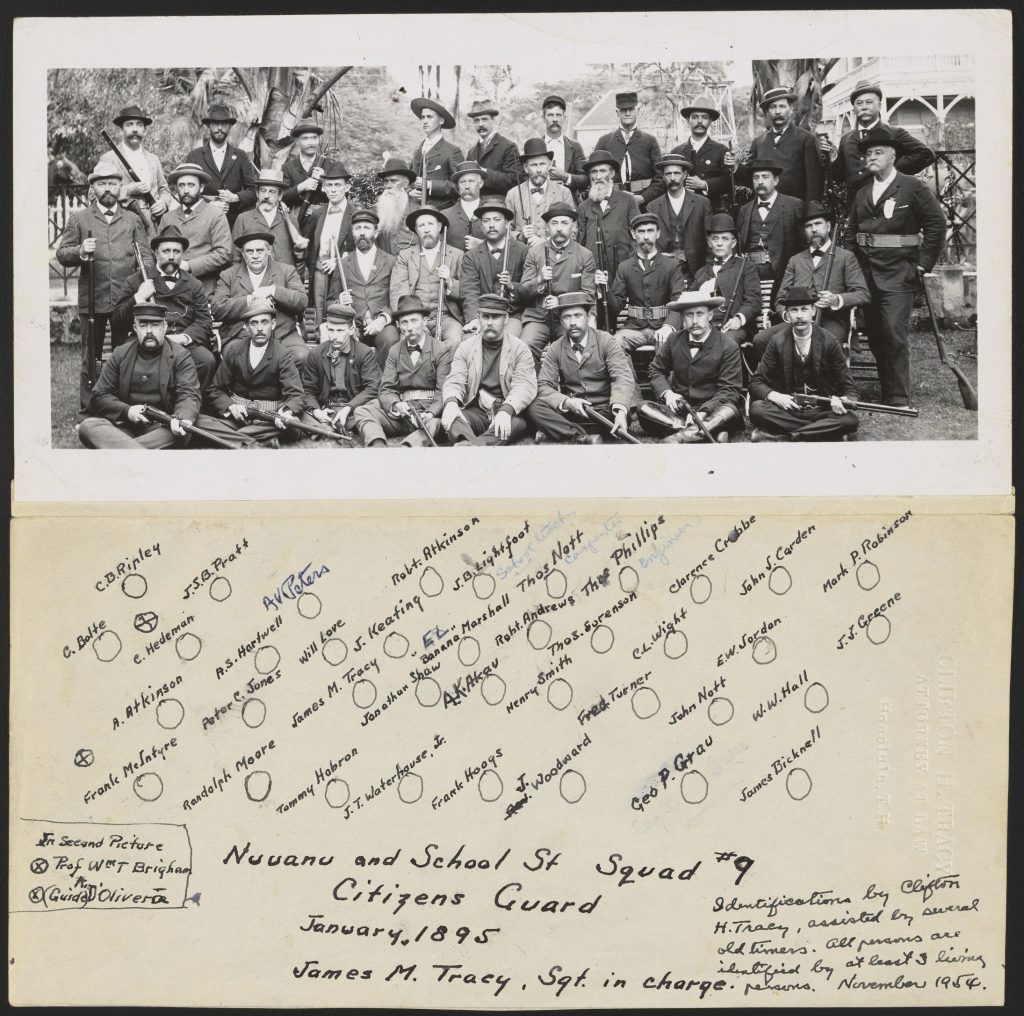 C.B. Ripley
J.S.B. Pratt
AV Peters
Robt. Atkinson
J.B. Lightfoot
Thos Nott
Carpenter
Thos Phillips
Engineer
Clarence Crabbe
John S. Carden
Mark P. Robinson
C. Bolte
C. Hedeman
A.S. Hartwell
Will Love
J. Keating
"EL"
Banana Marshall
Robt. Andrews
Thos. Sorenson
C.L. Wight
E.W. Jordan
J.J. Greene
A. Atkinson
Peter C. Jones
James M. Tracy
Jonathan Shaw
A.K. Akau
Henry Smith
Fred. Turner
John Nott
W.W. Hall
Frank McIntyre
Randolph Moore
Tommy Hobron
J.T. Waterhouse, Jr.
Frank Hoogs
J. Woodward
Geo P. Grau
James Bicknell
CLIFTON H. TRACY
ATTORNEY AT LAW
Honolulu, T. H.
In Second Picture
Prof Wm T Brigham
(Guido) D'Oliveria
Nuuanu and School St Squad #9
Citizens Guard
January, 1895
James M. Tracy, Sgt. in charge.
Identifications by Clifton
H. Tracy, assisted by several
old timers. All persons are
identified by at least 3 living
persons. November 1954.